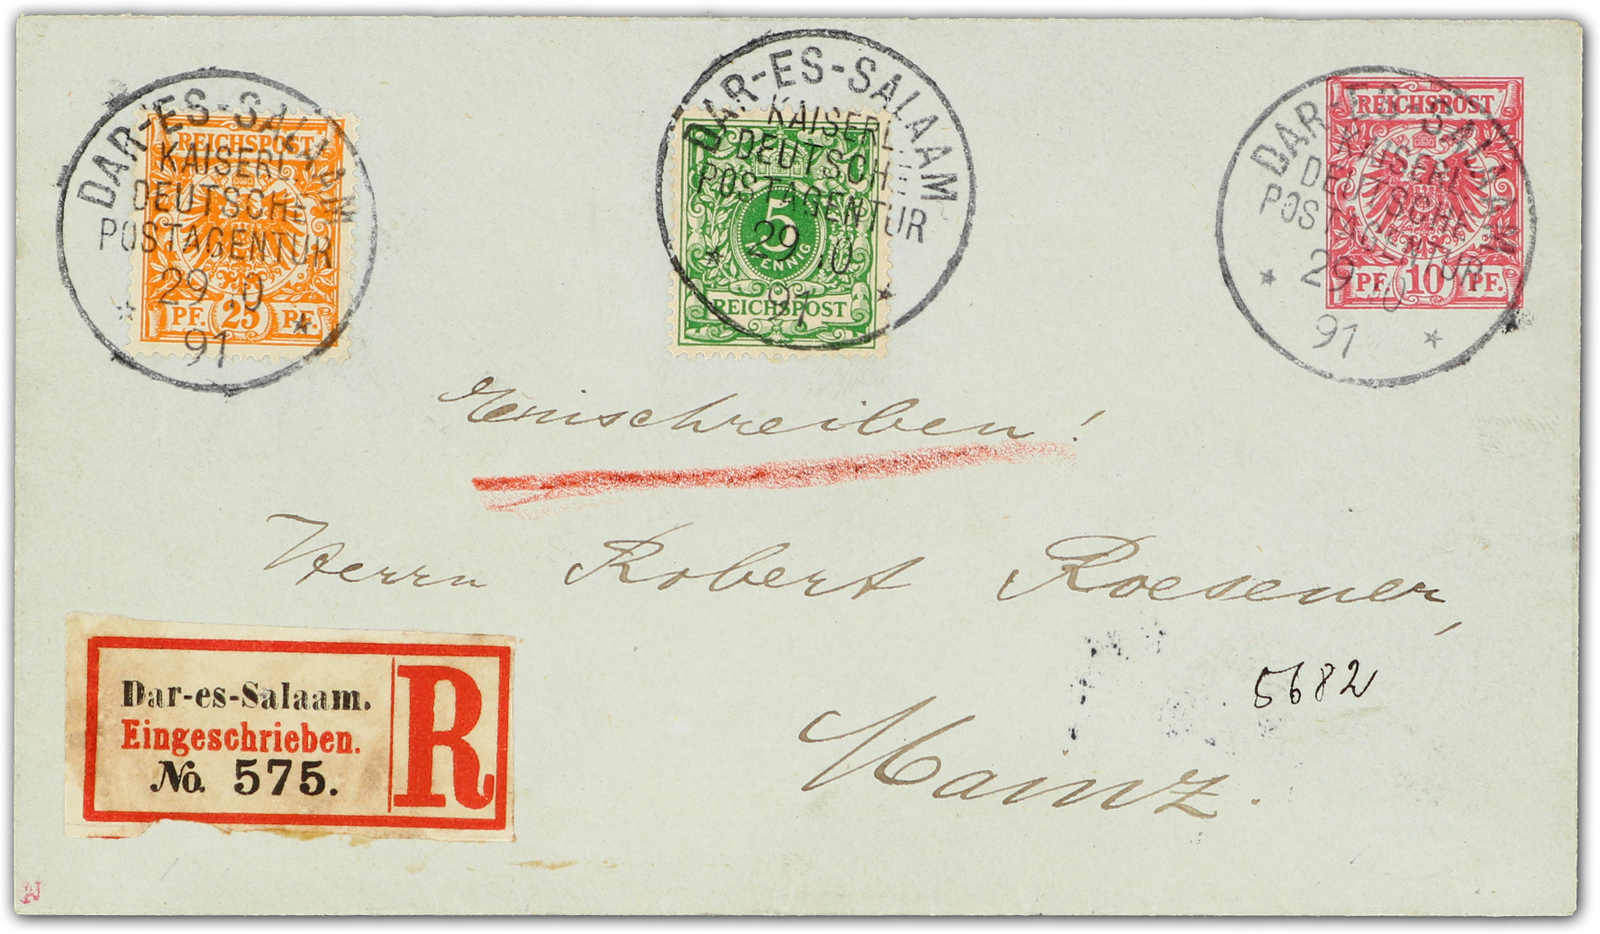 DAR-ES-SALAAM
REICHSPOST
KAISERL.
DEUTSCHE
POSTAGENTUR
29 10
PF. 25 PF.
91
DAR-ES-SALAAM
KAISERL.
DEUTSCHE
POSTAGENTUR
5
29 10
PFENNIG
91
REICHSPOST
DAR-ES-SALAAM
REICHSPOST
KAISERL.
DEUTSCHE
POSTAGENTUR
29 10
PF. 10 PF.
91
Einschreiben!
Herrn Robert Roesener,
Mainz.
5682
Dar-es-Salaam.
Eingeschrieben.
No. 575.
R